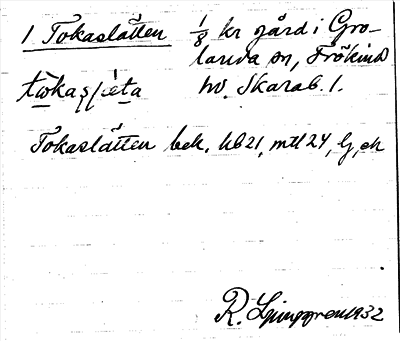 1 Tokaslätten 1/8 kr gård i Gro-
landa sn, Frökinds
hd. Skarab. l.
Tokaslätten bek. hb 21, mtl 24, lj, ek
R. Ljunggren 1932